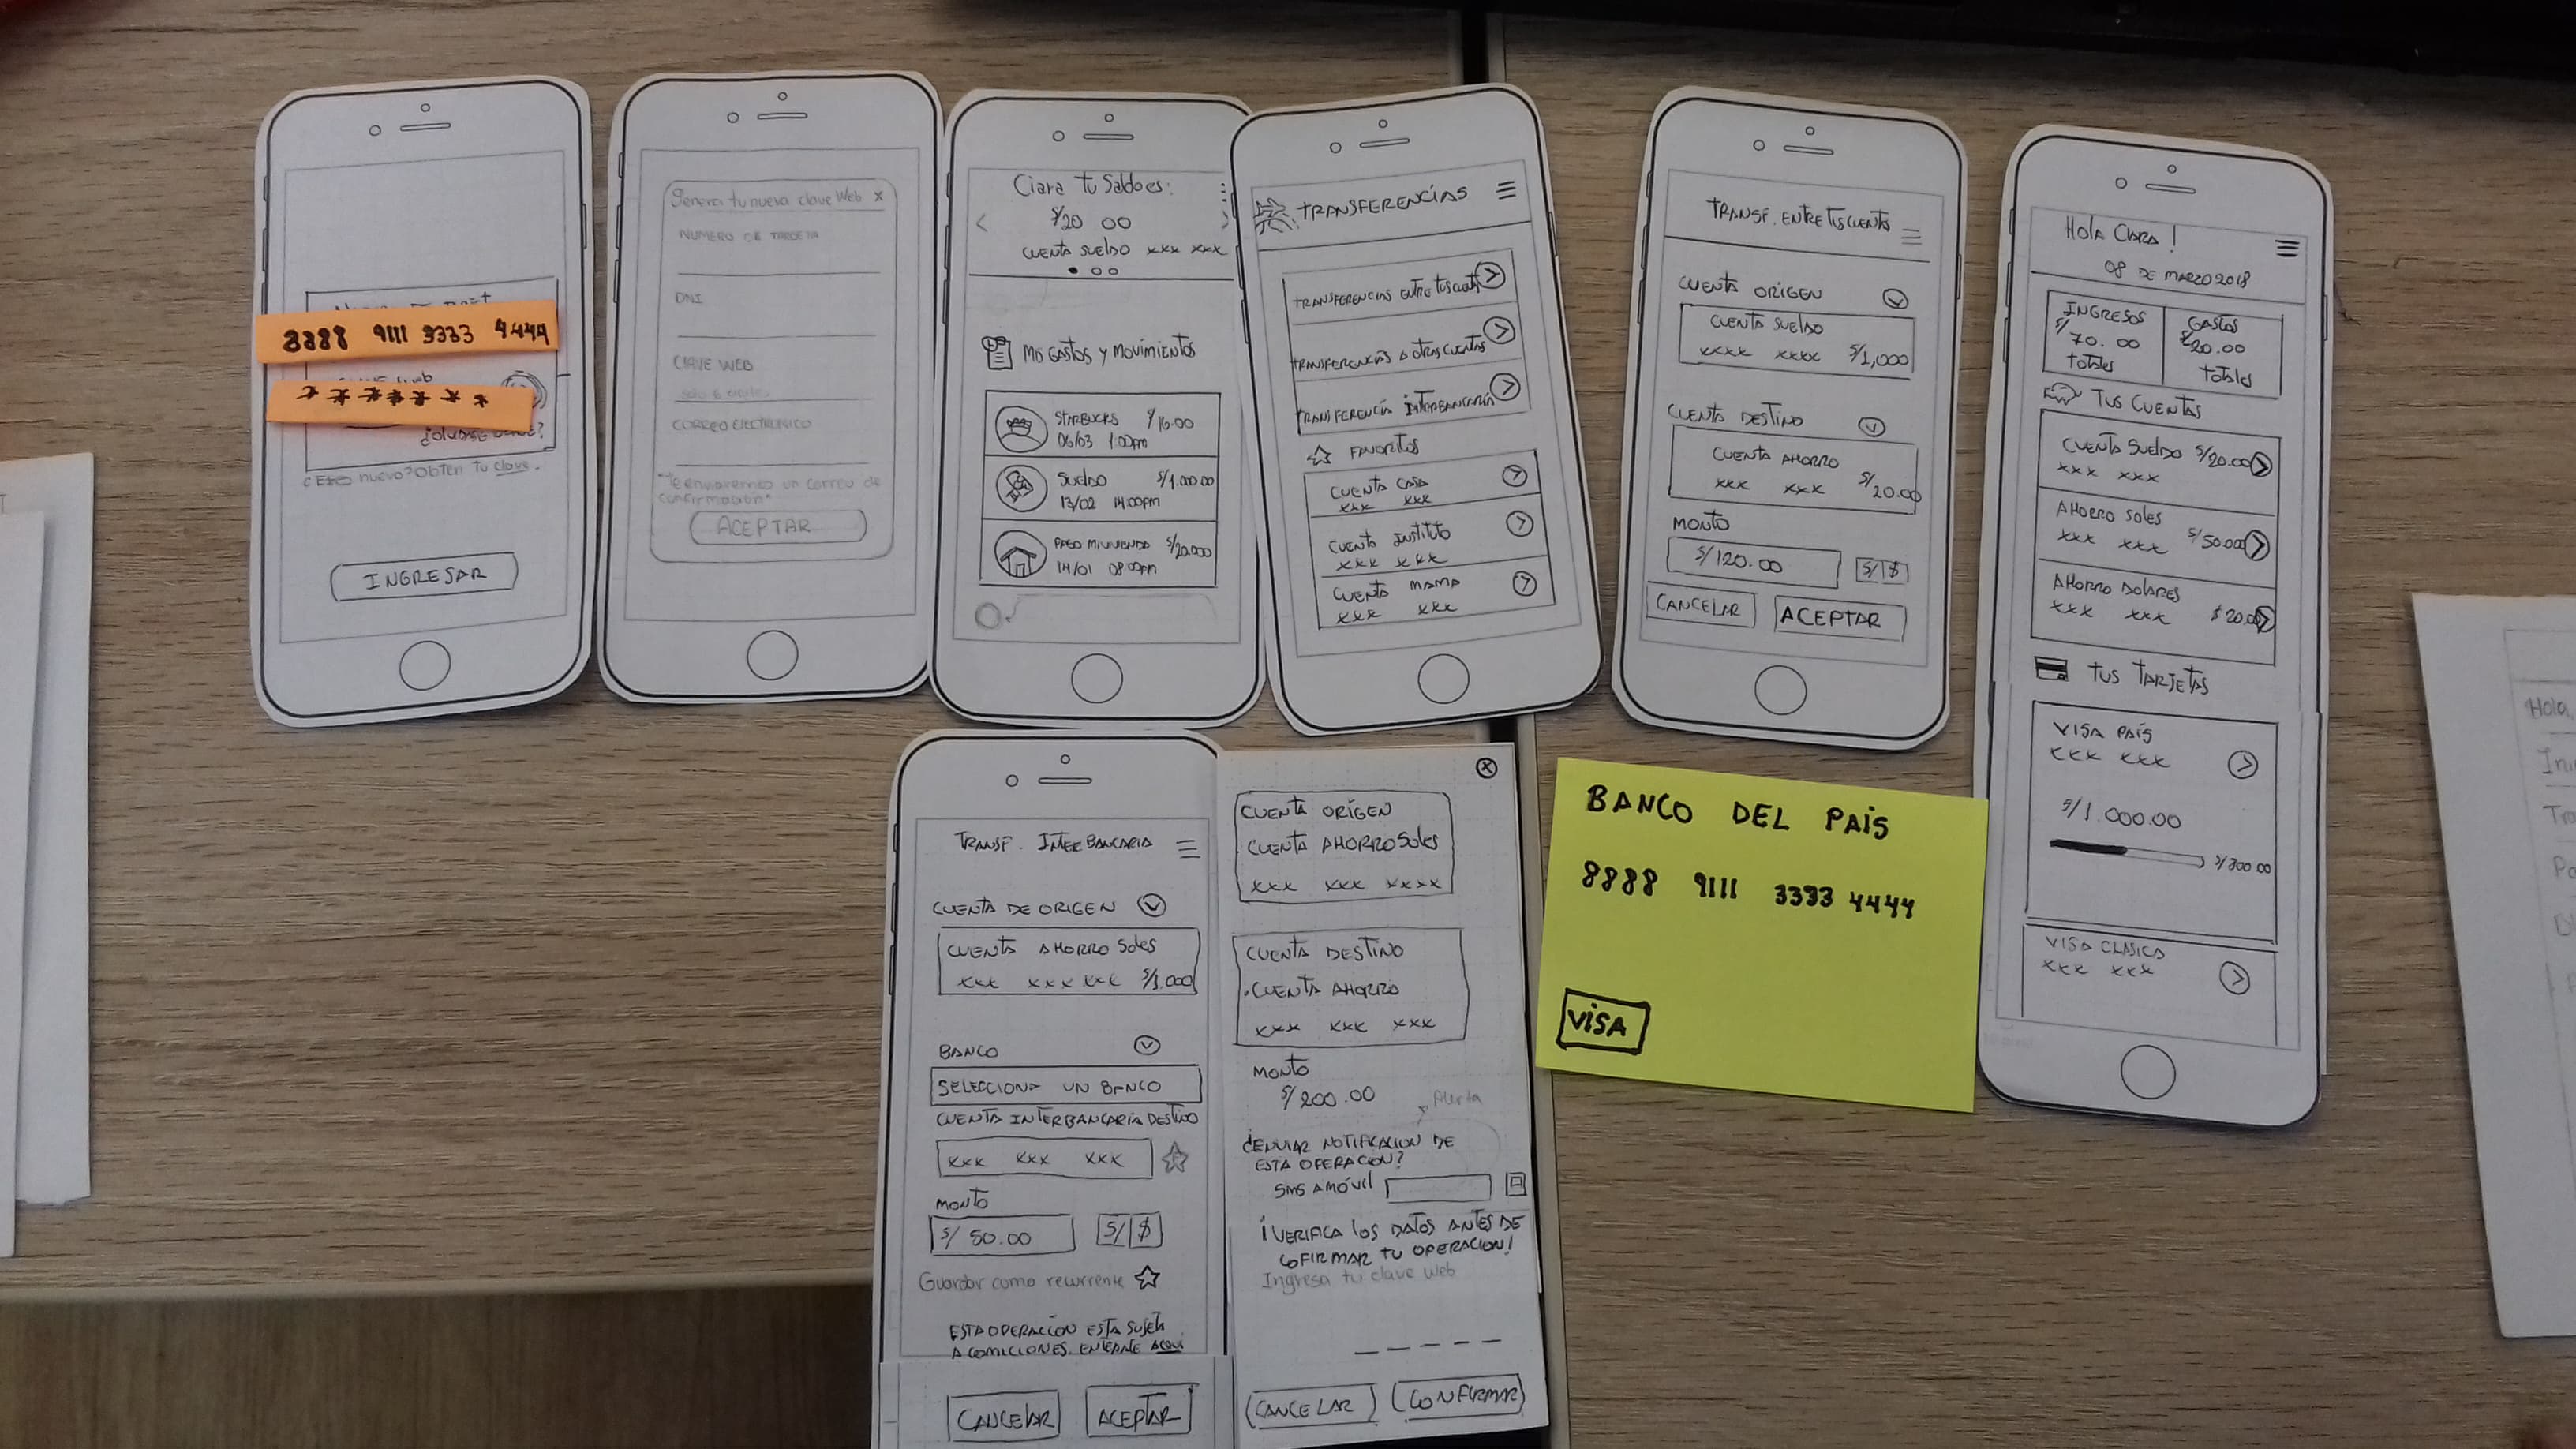 8888 9111 3333 4444
* * * * * * * *
nuevo? Obten tu clave.
INGRESAR
Genera tu nueva clave Web x
NUMERO DE TARJETA
DNI
CLAVE WEB
CORREO ELECTRONICO
"Te enviaremos un correo de
confirmación"
ACEPTAR
Clara tu Saldo es:
< S/20 00 >
CUENTA SUELDO xxx xxx
MIS GASTOS Y MOVIMIENTOS
STARBUCKS S/16.00
06/03 1:00pm
SUELDO S/1.000.00
13/02 14:00pm
PAGO MIVIVIENDA S/20.000
14/01 08:00pm
TRANSFERENCIAS
TRANSFERENCIAS ENTRE TUS CUENTAS
TRANSFERENCIAS A OTRAS CUENTAS
TRANSFERENCIA INTERBANCARIA
FAVORITOS
CUENTA CASA
xxx xxx
CUENTA INSTITUTO
xxx xxx
CUENTA MAMA
xxx xxx
TRANSF. ENTRE TUS CUENTAS
CUENTA ORIGEN
CUENTA SUELDO
xxxx xxxx S/1,000
CUENTA DESTINO
CUENTA AHORRO
xxx xxx S/20.00
MONTO
S/120.00 S/ $
CANCELAR ACEPTAR
HOLA CLARA!
08 DE MARZO 2018
INGRESOS
S/70.00
totales
GASTOS
S/20.00
totales
TUS CUENTAS
CUENTA SUELDO S/20.00
xxx xxx
AHORRO SOLES
xxx xxx S/50.00
AHORRO DOLARES
xxx xxx $20.00
TUS TARJETAS
VISA PAÍS
xxx xxx
S/1 000.00
S/300.00
VISA CLASICA
xxx xxx
TRANSF. INTERBANCARIA
CUENTA DE ORIGEN
CUENTA AHORRO Soles
xxx xxx xxx S/1.000
BANCO
SELECCIONA UN BANCO
CUENTA INTERBANCARIA DESTINO
xxx xxx xxx
MONTO
S/ 50.00 S/ $
Guardar como recurrente
ESTA OPERACION ESTA SUJETA
A COMICIONES. ENTERATE AQUI
CANCELAR ACEPTAR
CUENTA ORIGEN
CUENTA AHORRO Soles
xxx xxx xxxx
CUENTA DESTINO
.CUENTA AHORRO
xxx xxx xxx
MONTO
S/200.00
Alerta
¿ENVIAR NOTIFICACION DE
ESTA OPERACION?
SMS A MÓVIL
¡VERIFICA LOS DATOS ANTES DE
COFIRMAR TU OPERACION!
Ingresa tu clave web
CANCELAR CONFIRMAR
BANCO DEL PAÍS
8888 9111 3333 4444
VISA
Hola,